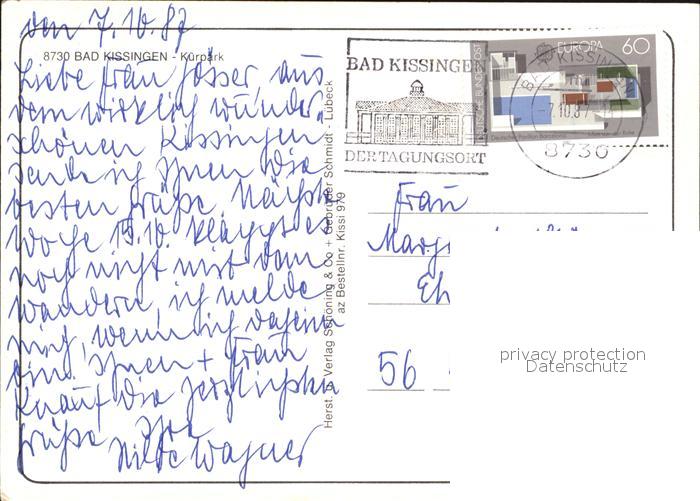 den 7.10.87
8730 BAD KISSINGEN - Kurpark
Liebe Frau Jösser, aus
dem wirklich wunder-
schönen Kissingen
sende ich Ihnen die
besten Grüße. Nächste
Woche 15.10. klappt es
noch nicht mit dem
wandern, ich melde
mich, wenn ich daheim
bin. Ihnen + Frau
Knauf die herzlichsten
Grüße Ihre
Hilde Wagner
Herst. u. Verlag Schöning & Co + Gebrüder Schmidt - Lübeck
az Bestellnr. Kissi 979
BAD KISSINGEN
DER TAGUNGSORT
DEUTSCHE BUNDESPOST
EUROPA 60
Deutscher Pavillon Barcelona
-7.10.87
8730
Frau
Marg
Eh
56
privacy protection
Datenschutz